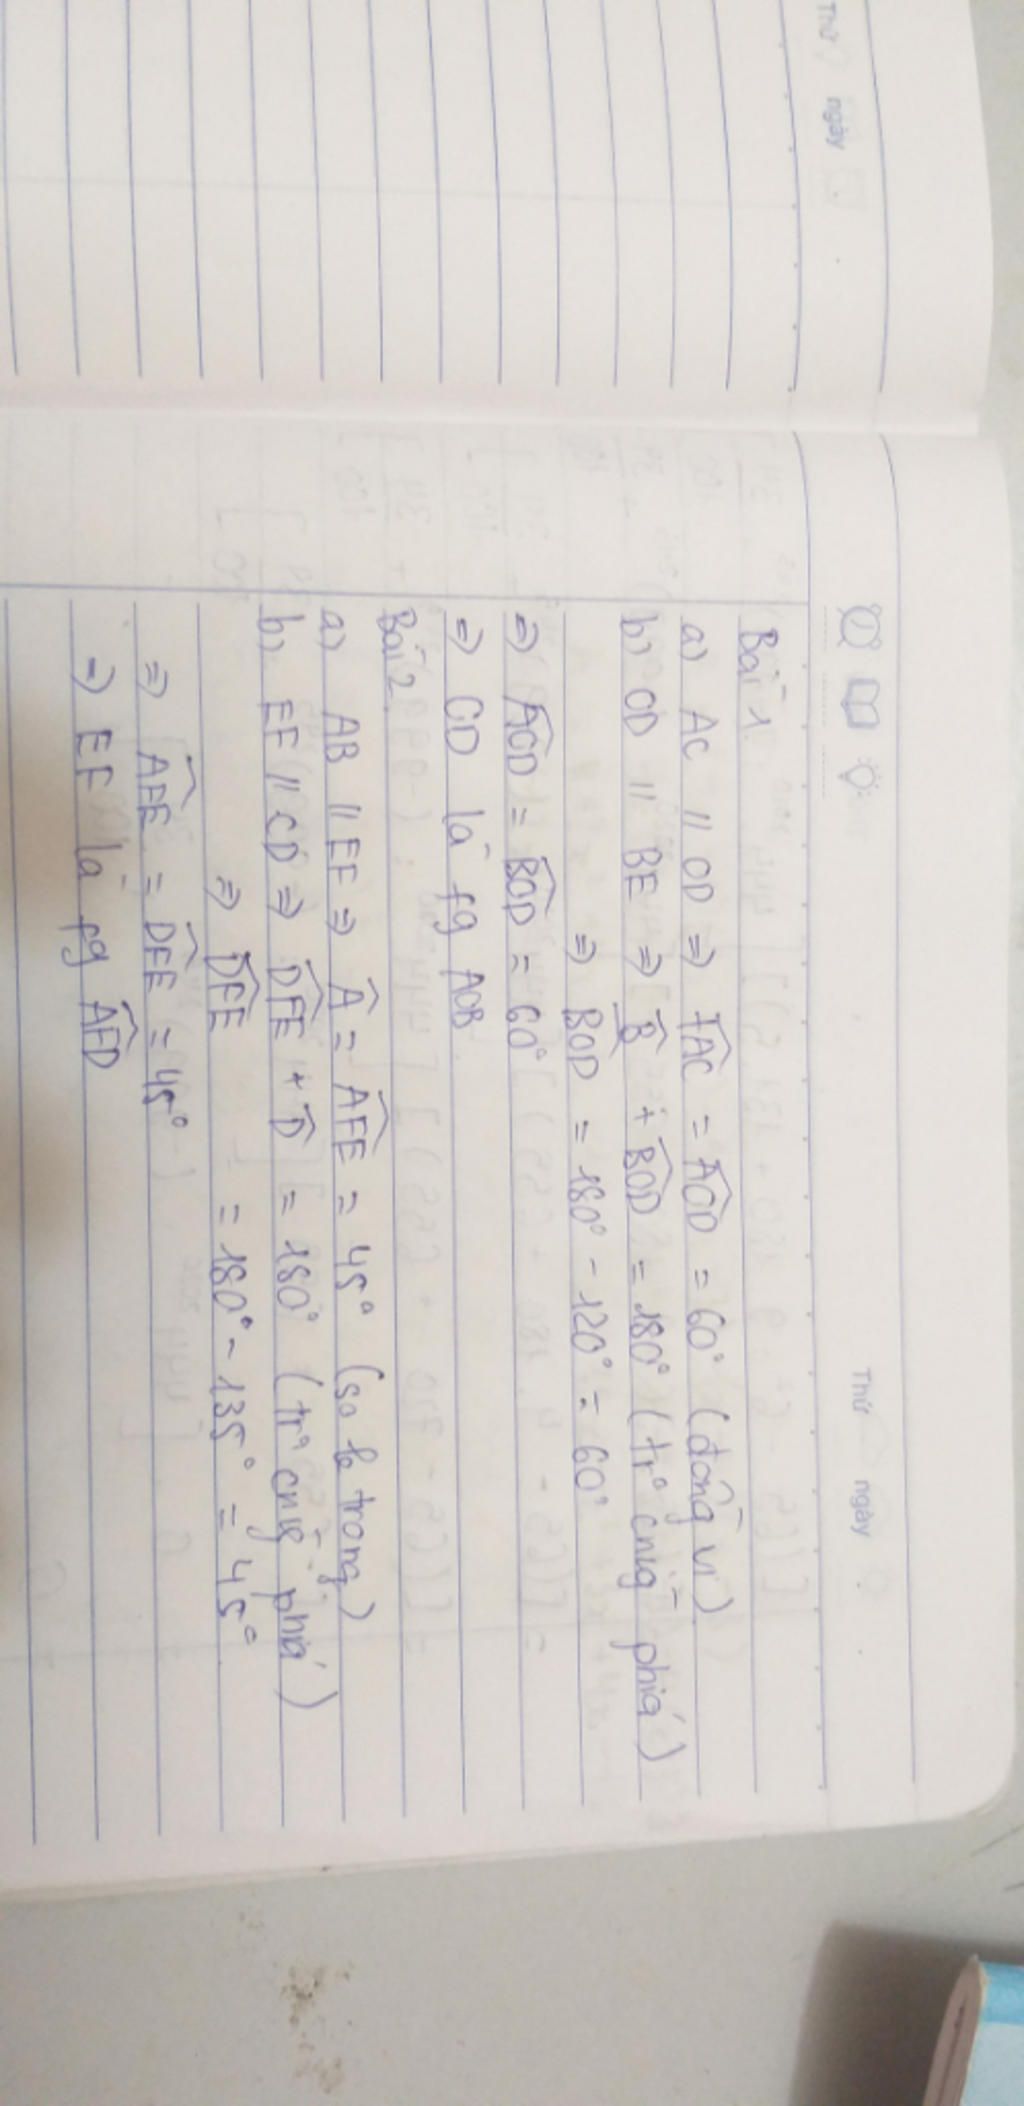 Thứ ngày
Thứ ngày
Bài 1.
a) AC // OD => IAC = AOD = 60° (đồng vị)
b) OD // BE => B + BOD = 180° (tr° cùng phía)
=> BOD = 180° - 120° = 60°
=> AOD = BOD = 60°
=> OD là fg AOB
Bài 2.
a) AB // EF => A = AFE = 45° (so le trong)
b) EF // CD => DFE + D = 180° (tr° cùng phía)
=> DFE = 180° - 135° = 45°
=> AFE = DFE = 45°
=> EF là fg AFD